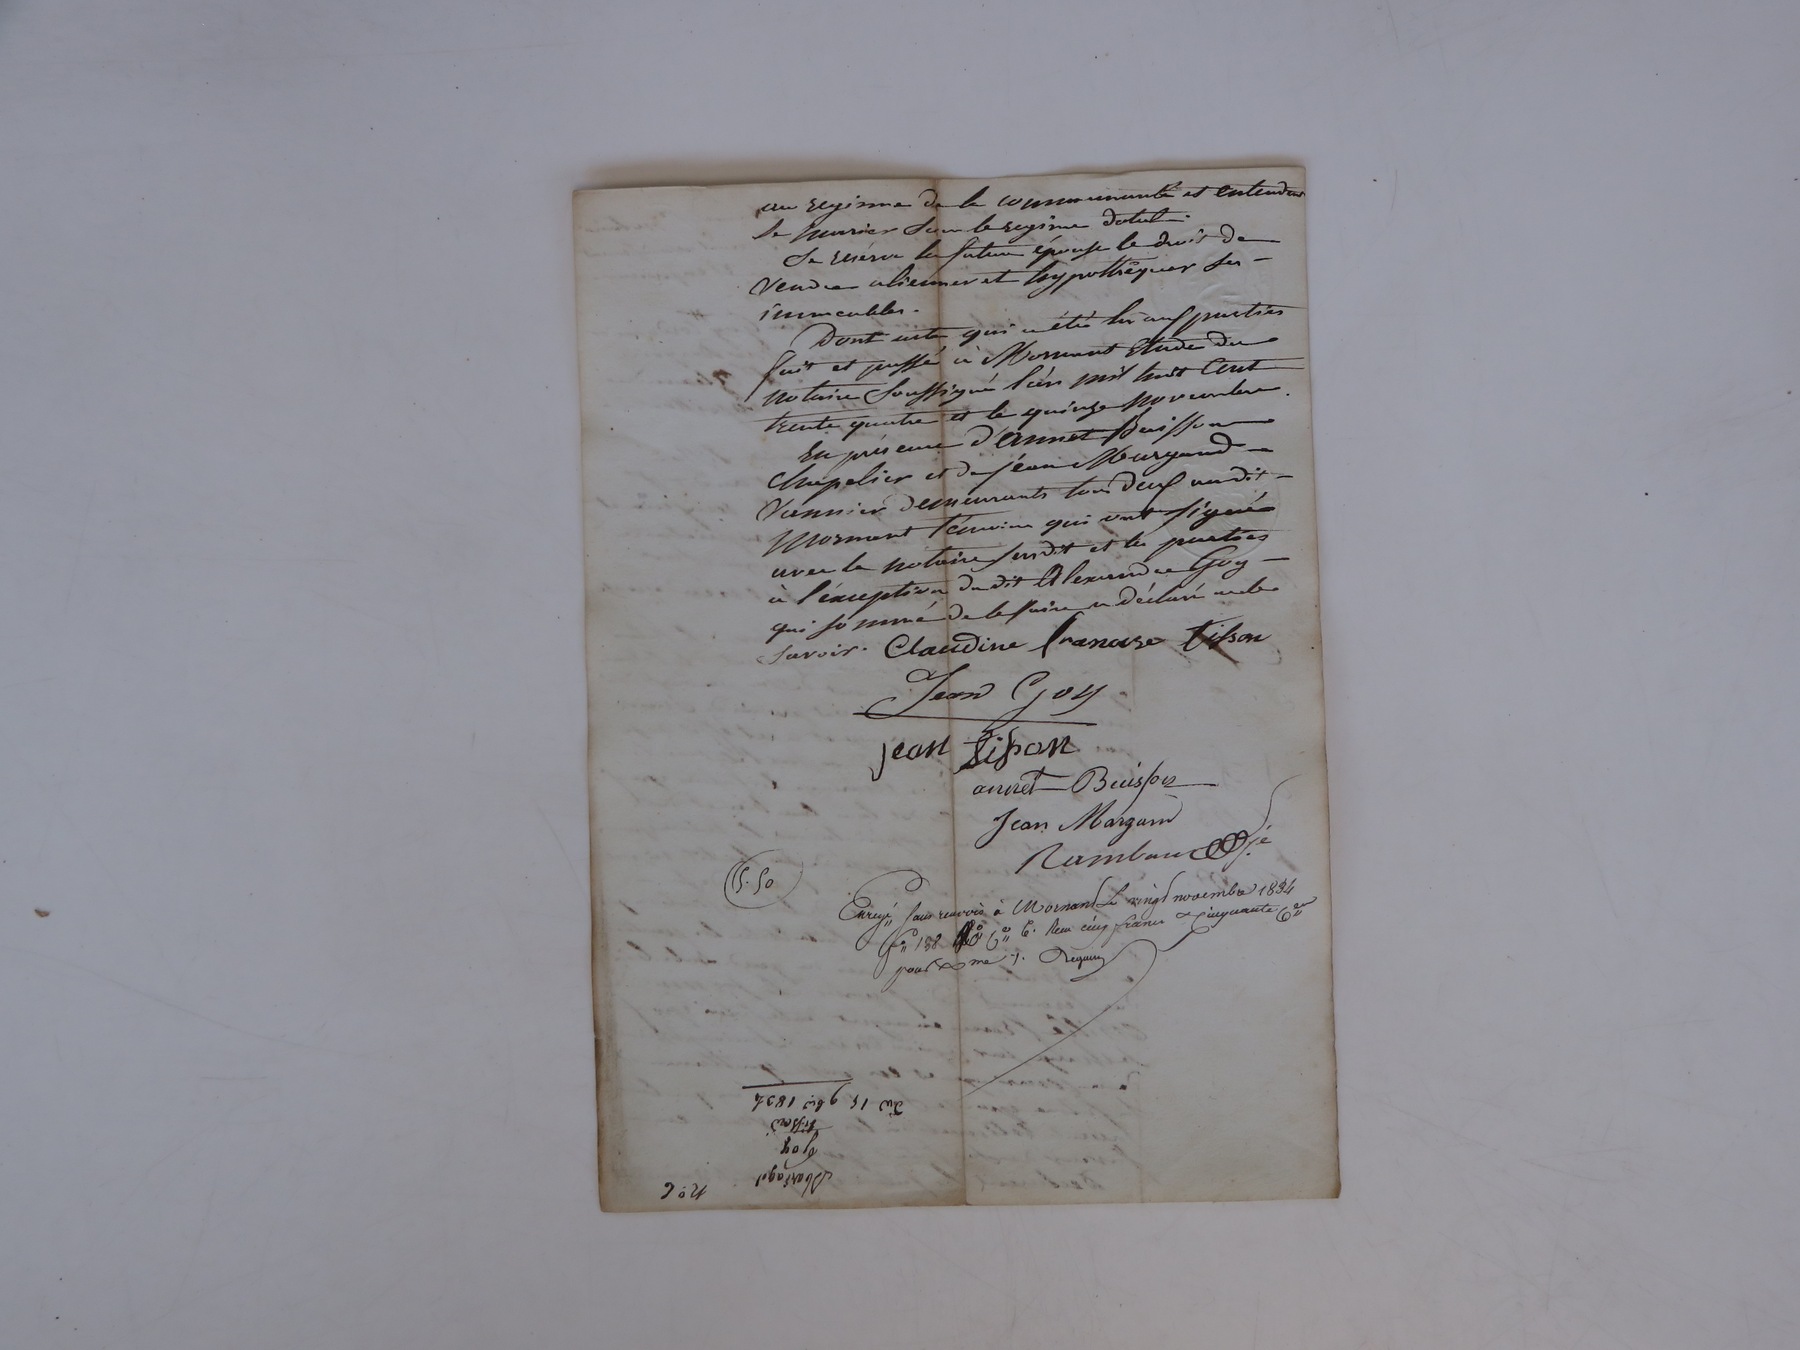 au regime de la communauté et entendent
se marier sous le regime dotal.
Se réserve la future épouse le droit de
vendre aliener et hypothéquer ses
immeubles.
Dont acte qui a été lu aux parties
fait et passé à Mornant Etude du
notaire soussigné l'an mil huit cent
trente quatre et le quinze novembre.
En présence d'annet Buisson
chapelier et de jean Margand
vannier demeurants tous deux audit
Mornant témoins qui ont signé
avec le notaire susdit et les parties
à l'éxception du dit Alexandre Goy
qui sommé de le faire a déclaré ne le
savoir. Claudine francoze tisson
Jean Goy
jean tisson
annet Buisson
Jean Margand
Rambaud
5.50
Enregé sans renvois à Mornant le vingt novembre 1834
fo 138 Ro Co 6. Reçu cinq francs & cinquante Cen
pour xme . Requin
Du 15 9bre 1834
tisson
Goy
Mariage
No 6